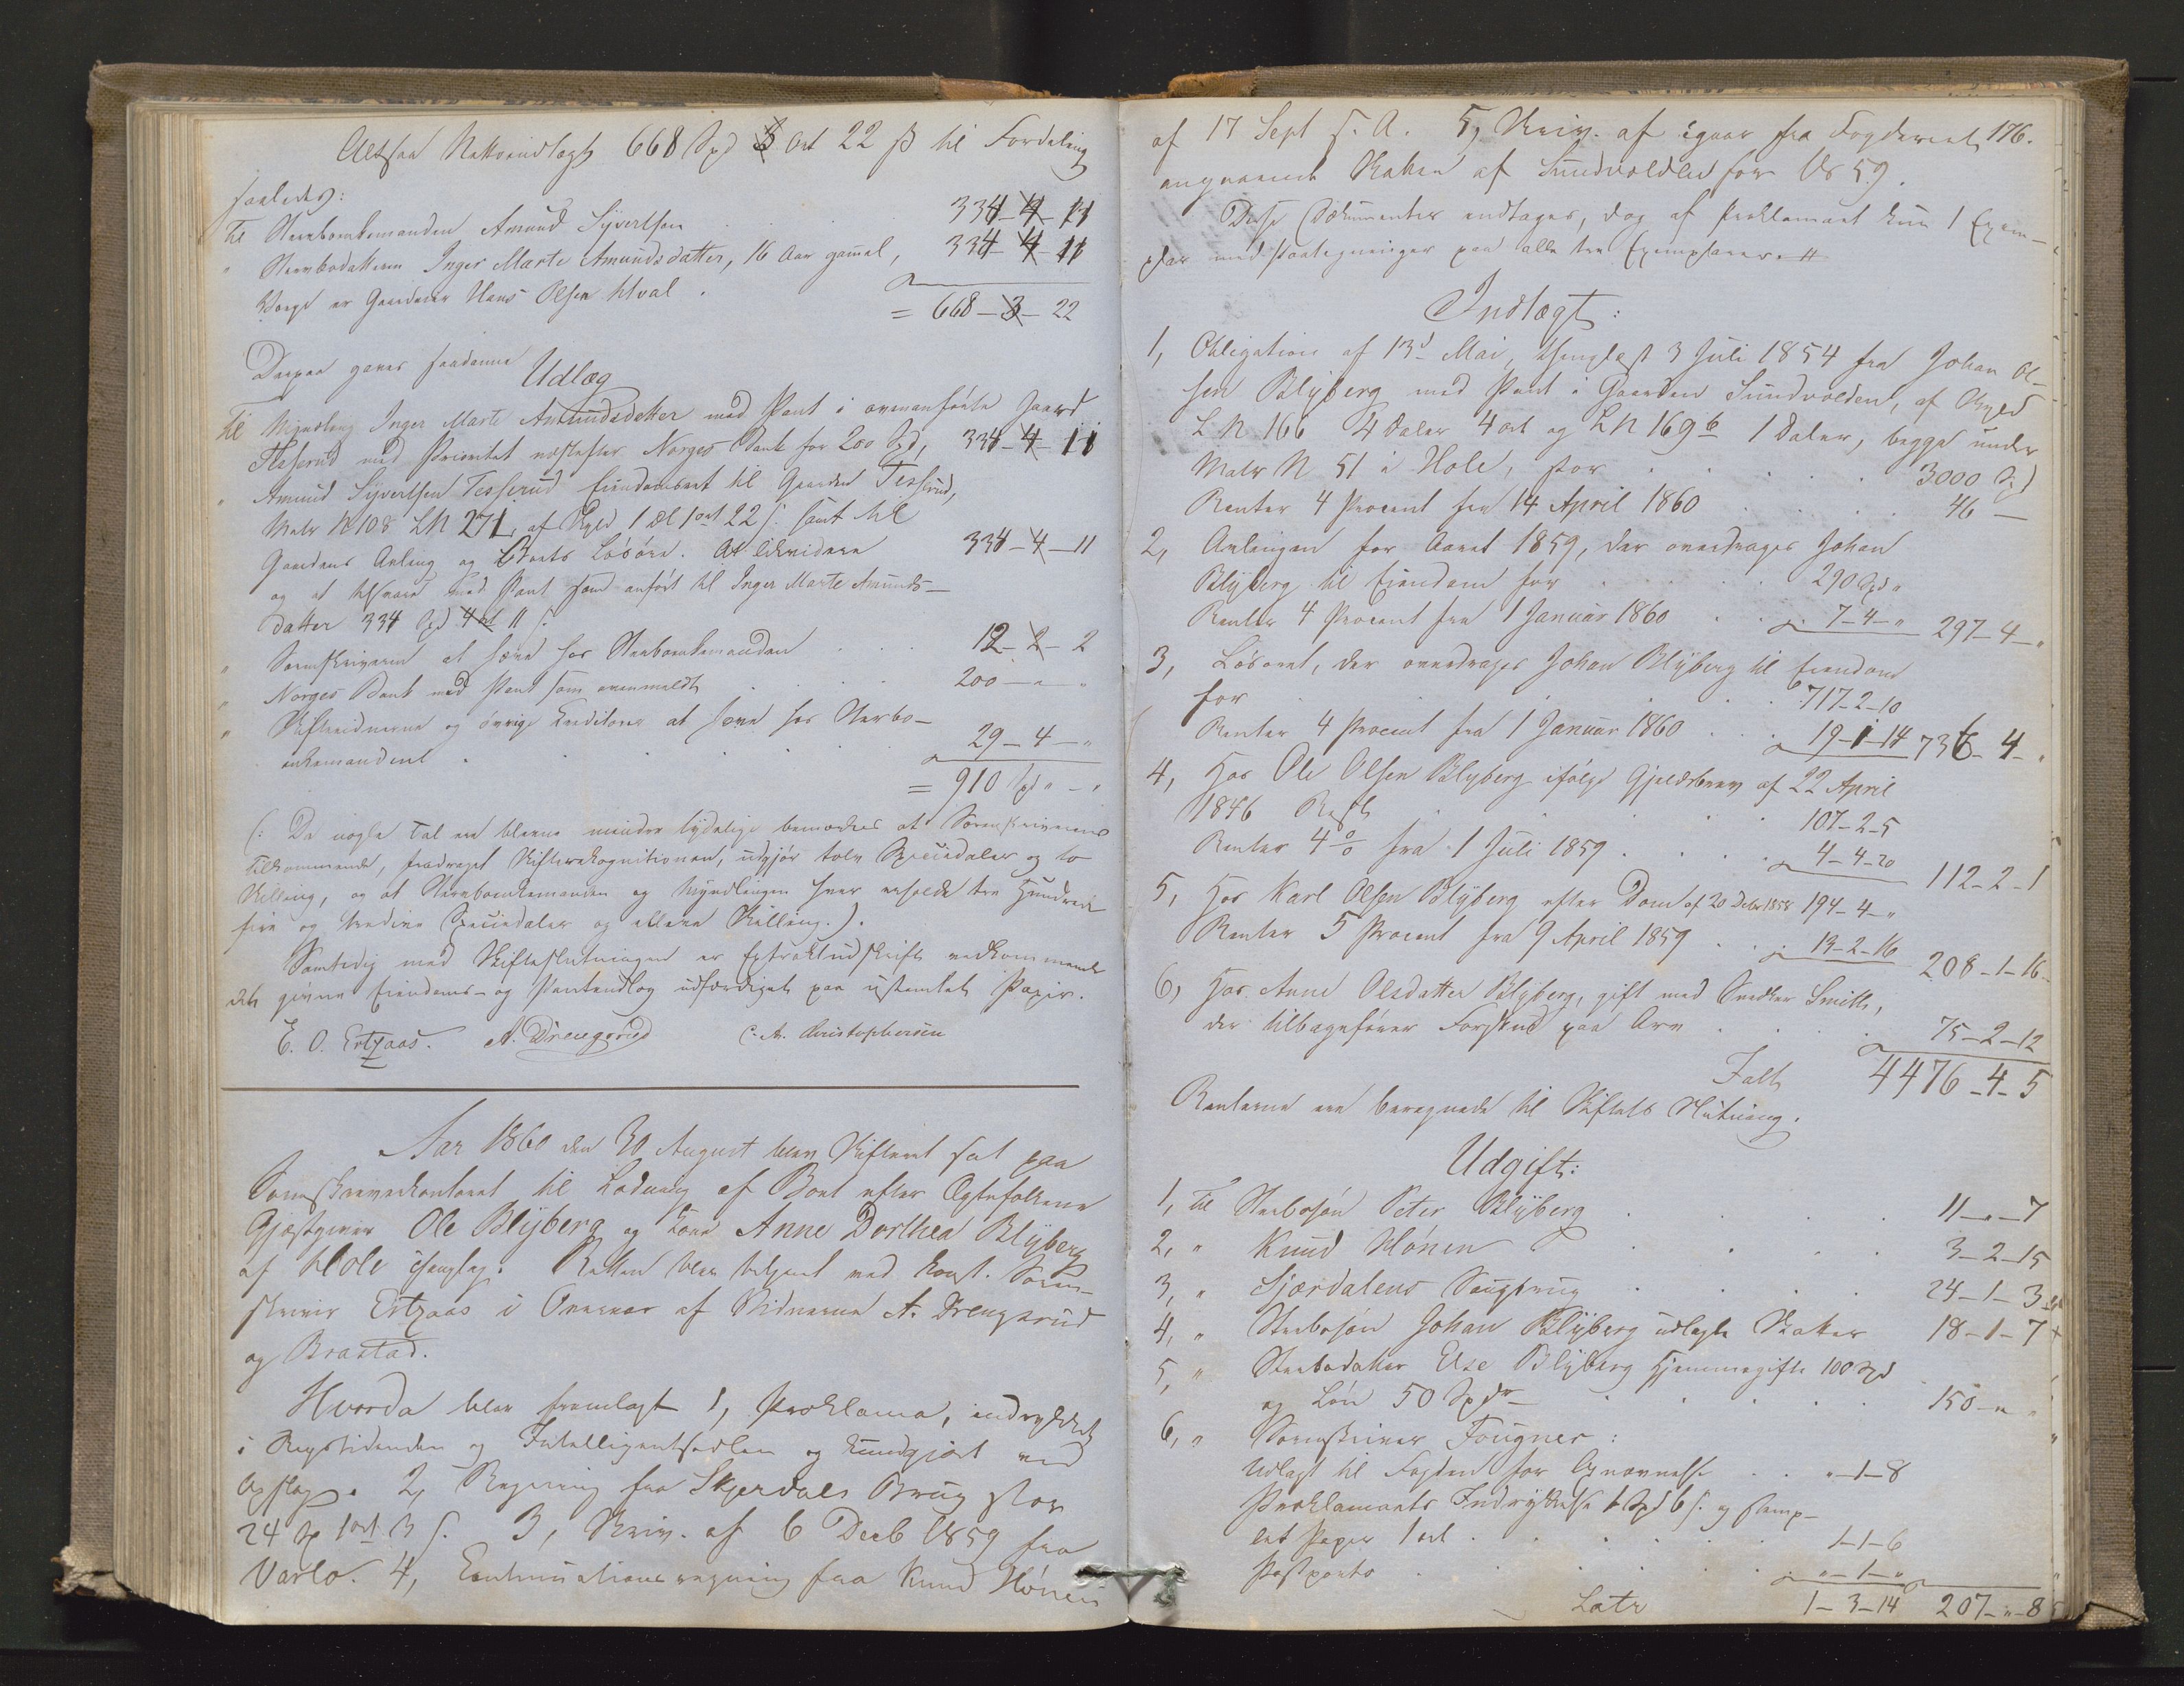 Altsaa Nettoindtægt 668 Spd 3 ort 22 ß til Fordeling
saaledes:
Til Sterboenkemanden Amund Syvertsen 334-4-11
" Sterbodatteren Inger Marte Amundsdatter, 16 Aar gamel, 334-4-11
Værge er Gaardmand Hans Olsen Hval. = 668-3-22
Derpaa gaves saadanne
Udlæg
Til Myndling Inger Marte Amundsdatter med Pant i ovenanførte Gaard
Tesserud med Prioritet næstefter Norges Bank for 200 Spd, 334-4-11
" Amund Syvertsen Tesserud Eiendomsret til Gaarden Tesserud,
Matr N 108 LN 271, af Skyld 1 Dl 1 ort 22 s. samt til
Gaardens Avling og Boets Løsøre. At likvidere 334-4-11
og at tilsvare med Pant som anført til Inger Marte Amunds-
datter 334 Spd 4 ort 11 s.
" Sorenskriveren at hæve hos Sterboenkemanden 12-2-2
" Norges Bank med Pant som ovenmeldt 200-"-"
" Skiftevidnerne og øvrige Kreditorer at hæve hos Sterbo-
enkemanden 29-4-"
= 910 Spd "-"
(: Da nogle Tal ere blevne mindre tydelige bemærkes at Sorenskriverens
Tilkommende, fradraget Skifterekognitionen, udgjør tolv Speciedaler og to
Skilling, og at Sterboenkemanden og Myndlingen hver erholdt tre Hundrede
fire og tredive Speciedaler og elleve Skilling.).
Samtidig med Skifteslutningen er Extraktudskrift vedkommende
det givne Eiendoms- og Pantudlæg udfærdiget paa ustemplet Papir.
E. O. Ertzaas. A. Drengsrud C. A. Christophersen
Aar 1860 den 30 August blev Skifteret sat paa
Sorenskriverkontoret til Lodning af Boet efter Ægtefolkene
Gjæstgiver Ole Blyberg og Kone Anne Dorthea Blyberg
af Hole Thinglag. Retten blev betjent ved konst. Soren-
skriver Ertzaas i Overvær af Vidnerne A. Drengsrud
og Brastad.
Hvorda blev fremlagt 1, Proklama, indrykket
i Rigstidenden og Intelligentsedlen og kundgjort ved
Opslag. 2, Regning fra Skjerdals Brug stor
24 Sp 1 ort 3 s. 3, Skriv. af 6 Decb 1859 fra
Varlo. 4, regning fra Knud Hønen
af 17 Sept f. A. 5, Skriv. af igaar fra Fogderiet 176.
angaaende Skatten af Sundvolden for Us 59.
Disse Dokumenter indtages, dog af Proklamaet kun 1 Exem-
plar med Paategninger paa alle tre Exemplarer.
Indtægt:
1, Obligation af 13d Mai, thinglæst 3 Juli 1854 fra Johan Ol-
sen Blyberg med Pant i Gaarden Sundvolden, af Skyld
LN 166 4 Daler 4 ort og LN 169b 1 Daler, begge under
Matr N 51 i Hole, stor 3000 Spd
Renter 4 Procent fra 14 April 1860 46 -
2, Avlingen for Aaret 1859, der overdrages Johan
Blyberg til Eiendom for 290 Spd "
Renter 4 Procent fra 1 Januar 1860 7-4-" 297-4-"
3, Løsøret, der overdrages Johan Blyberg til Eiendom
for 717-2-10
Renter 4 Procent fra 1 Januar 1860 19-1-14 736-4-"
4, Hos Ole Olsen Blyberg ifølge Gjældsbrev af 22 April
1846 Rest 107-2-5
Renter 4% fra 1 Juli 1859 4-4-20 112-2-1
5, Hos Karl Olsen Blyberg efter Dom af 20 Debr 1858 194-4-"
Renter 5 Procent fra 9 April 1859 13-2-16 208-1-16
6, Hos Anne Olsdatter Blyberg, gift med Snedker Smith,
der tilbagefører Forskud paa Arv 75-2-12
Ialt 4476-4-5
Renterne ere beregnede til Skiftets Slutning.
Udgift:
1, Til Sterbosøn Peter Blyberg 11-"-7
2, " Knud Hønen 3-2-15
3, " Sjærdalens Saugbrug 24-1-3
4, " Sterbosøn Johan Blyberg udlagte Skatter 18-1-7
5, " Sterbodatter Else Blyberg Hjemmegifte 100 Spd
og Løn 50 Spdr 150-"-"
6, " Sorenskriver Fougner:
Udlagt til Fogden for Opnævnelse "-1-8
Proklamaets Indrykkelse 1 Spd 6 s. og stemp-
let Papir 1 ort 1-1-6
Postporto "-1-"
Latr 1-3-14 207-"-8